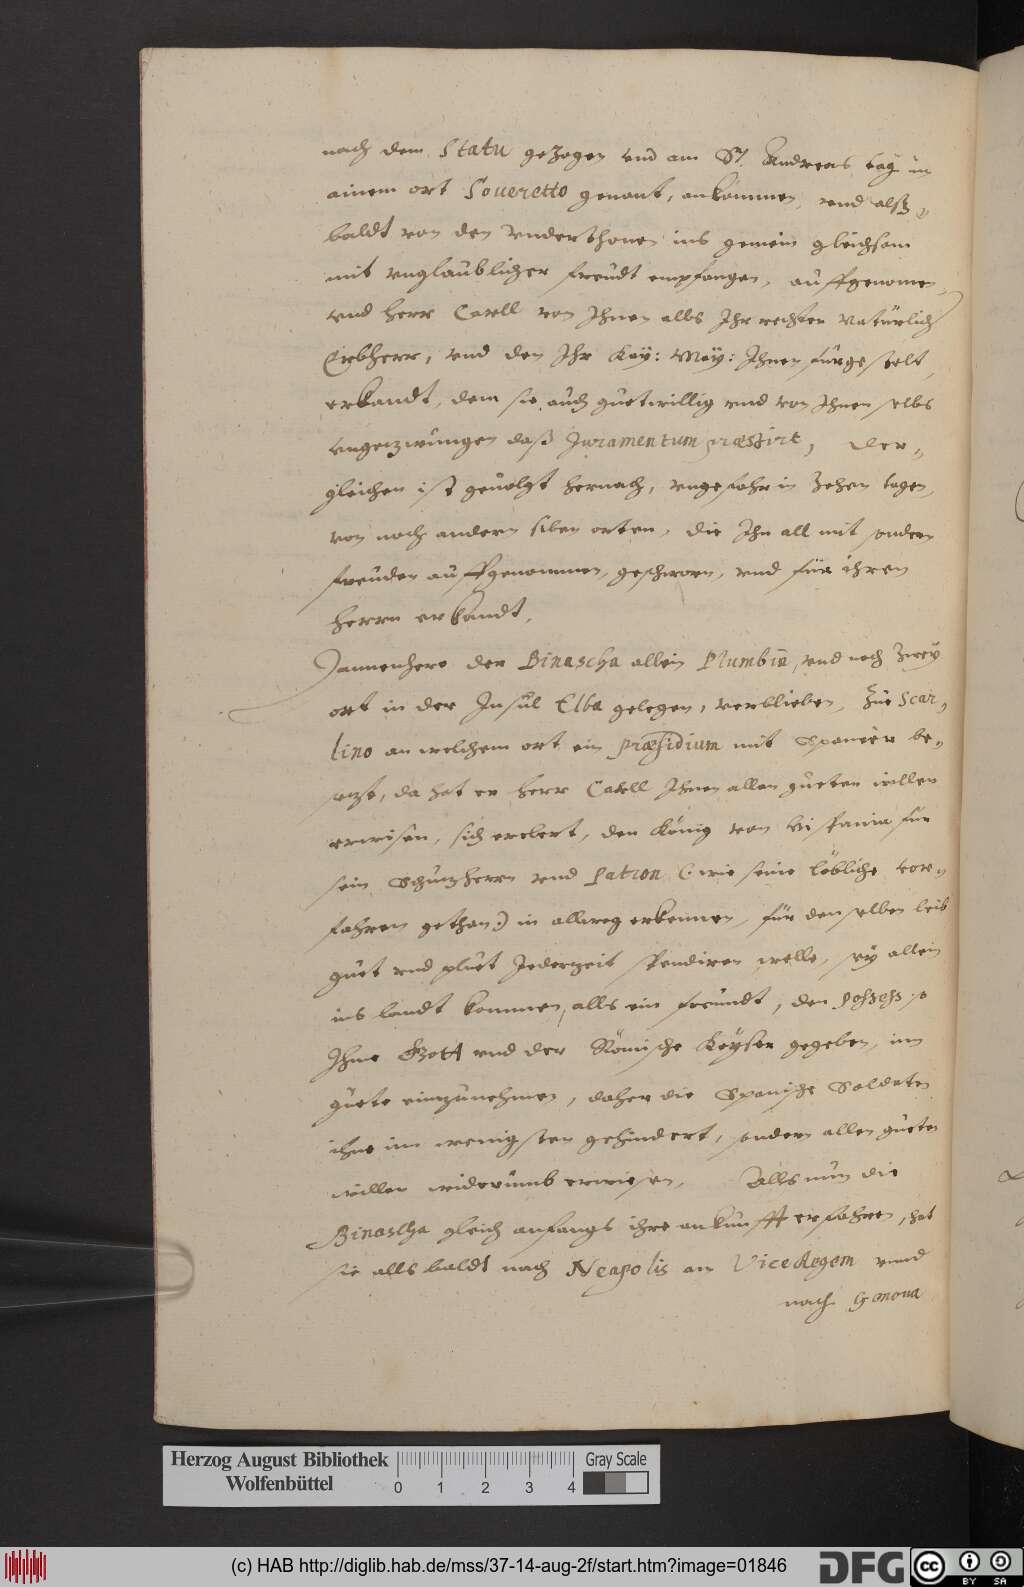 nach dem Statu gezogen vnd am St. Andreas tag in
ainem ort Soueretto genant, ankommen, vnd alß„
baldt von den Vnderthonen ins gemein gleichsam
mit vnglaublicher freudt empfangen, auffgenomen,
vnd herr Carll von Ihnen alls Ihr rechter Natürlich
Erbherr, vnd den Ihr Kay: May: Ihnen fürgestelt,
erkandt, dem sie auch guetwillig vnd von Ihnen selbs
vngezwungen daß Juramentum præstirt, Der„
gleichen ist geuolgt hernach, vngefahr in zehen tagen,
von noch andern siben orten, die Ihn all mit sondern
freuden auffgenommen, geschworn, vnd für ihren
herrn erkandt.
Dannenhero der Binascha allein Plumbin, vnd noch zwey
ort in der Insul Elba gelegen, verblieben, Zue Scar„
lino an welchem ort ein præsidium mit Spanier be„
sezt, da hat er herr Carll Ihnen allen gueten willen
erwisen, sich erclert, den König von Hispania für
sein Schuzherrn vnd Patron (: wie seine löbliche vor„
fahren gethan:) in allweg erkennen, für denselben leib
guet vnd pluet Iederzeit spendiren welle, sey allein
ins landt kommen, alls ein freundt, den possess so
Ihme Gott vnd der Römische Keyser gegeben, im
guete einzunehmen, daher die Spanische Soldaten
ihne im wenigsten gehindert, sondern allen gueten
willen widerumb erwisen. Alls nun die
Binascha gleich anfangs ihre ankunfft erfahren, hat
sie alls baldt nach Neapolis an ViceRegem vnnd
nach Genoua
Herzog August Bibliothek
Wolfenbüttel
0 1 2 3 4
Gray Scale
(c) HAB http://diglib.hab.de/mss/37-14-aug-2f/start.htm?image=01846
DFG
cc BY SA